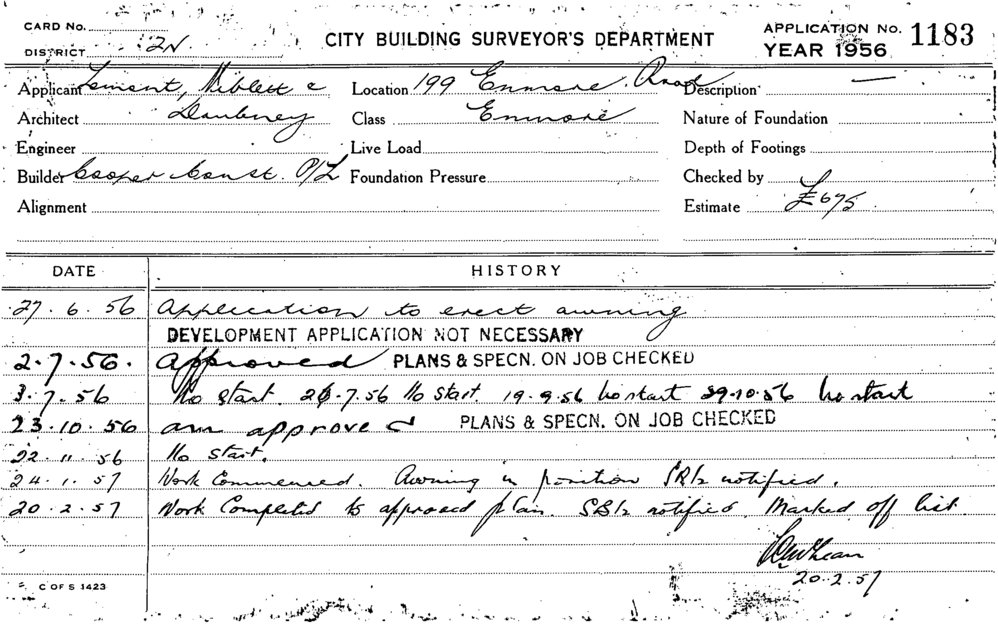 CARD No.
DISTRICT 2N.
CITY BUILDING SURVEYOR'S DEPARTMENT
APPLICATION No. 1183
YEAR 1956
Applicant Lamont, Niblett &
Location 199 Enmore Road
Description —
Architect Daubney
Class Enmore
Nature of Foundation
Engineer
Live Load
Depth of Footings
Builder Cooper Const. P/L
Foundation Pressure
Checked by
Alignment
Estimate £675
DATE HISTORY
27.6.56 Application to erect awning
DEVELOPMENT APPLICATION NOT NECESSARY
2.7.56. Approved PLANS & SPECN. ON JOB CHECKED
3.7.56 No start. 26.7.56 No start. 19.9.56 No start 29.10.56 No start
23.10.56 am approved PLANS & SPECN. ON JOB CHECKED
22.11.56 No start.
24.1.57 Work Commenced. Awning in position notified.
20.2.57 Work Completed to approved plan. notified. Marked off list.
20.2.57
C OF S 1423